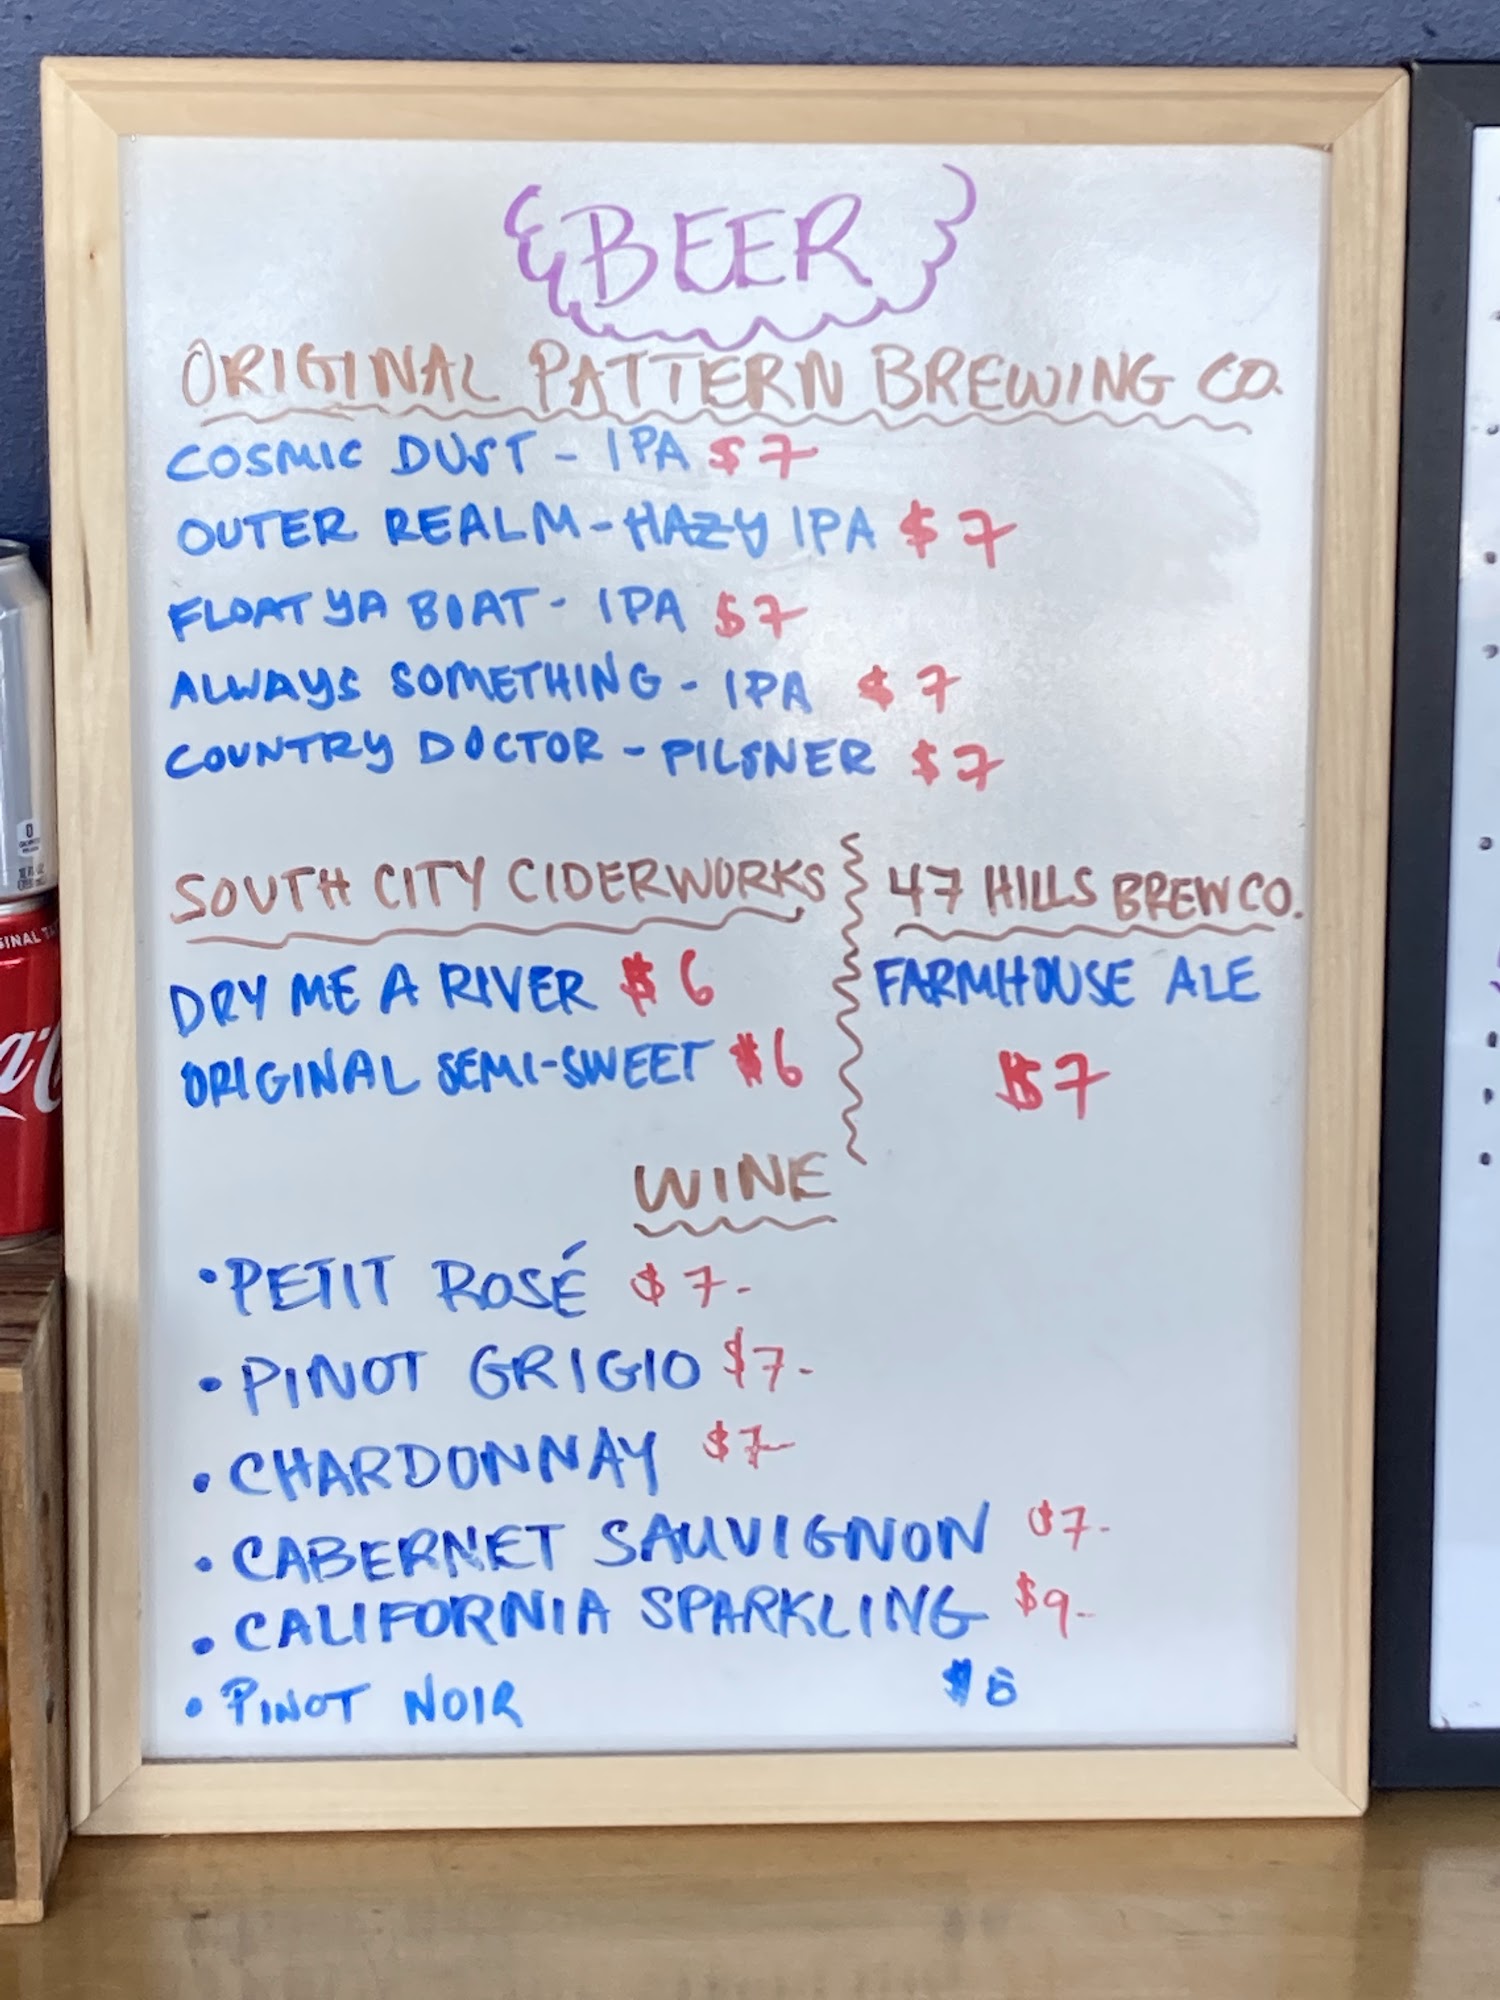 BEER
ORIGINAL PATTERN BREWING CO.
COSMIC DUST - IPA $7
OUTER REALM - HAZY IPA $7
FLOAT YA BOAT - IPA $7
ALWAYS SOMETHING - IPA $7
COUNTRY DOCTOR - PILSNER $7
SOUTH CITY CIDERWORKS
DRY ME A RIVER $6
ORIGINAL SEMI-SWEET $6
47 HILLS BREW CO.
FARMHOUSE ALE
$7
WINE
• PETIT ROSÉ $7-
• PINOT GRIGIO $7-
• CHARDONNAY $7-
• CABERNET SAUVIGNON $7-
• CALIFORNIA SPARKLING $9-
• PINOT NOIR